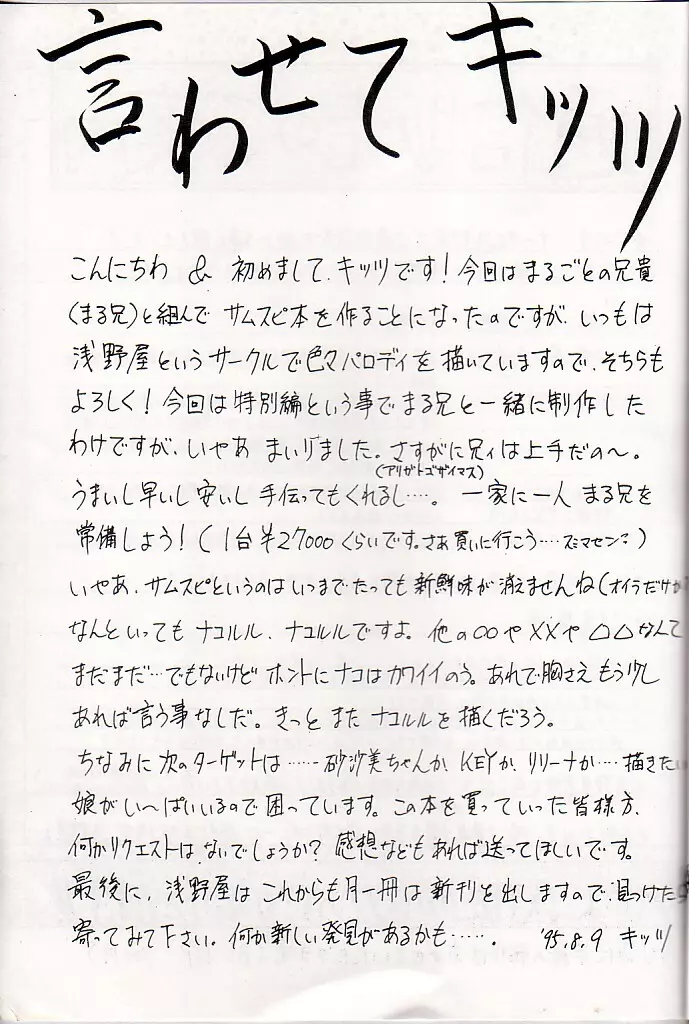 言わせてキッツ
こんにちわ & 初めまして、キッツです!今回はまるごとの兄貴
(まる兄)と組んで サムスピ本を作ることになったのですが、いつもは
浅野屋というサークルで色々パロディを描いていますので、そちらも
よろしく!今回は特別編という事でまる兄と一緒に制作した
わけですが、いやあ まいりました。さすがに兄ィは上手だの〜。
(アリガトゴザイマス)
うまいし早いし安いし手伝ってもくれるし‥‥。一家に一人 まる兄を
常備しよう!(1台¥27000くらいです。さあ買いに行こう‥‥スミマセン?)
いやあ、サムスピというのはいつまでたっても新鮮味が消えませんね(オイラだけか
なんといってもナコルル、ナコルルですよ。他の○○や××や△△なんて
まだまだ‥でもないけどホントにナコはカワイイのう。あれで胸さえもう少し
あれば言う事なしだ。きっとまたナコルルを描くだろう。
ちなみに次のターゲットは‥‥‥砂沙美ちゃんか、KEYか、リリーナか‥‥描きたい
娘がい〜ぱいいるので困っています。この本を買っていった皆様方、
何かリクエストはないでしょうか?感想などもあれば送ってほしいです。
最後に、浅野屋はこれからも月一冊は新刊を出しますので、見つけたら
寄ってみて下さい。何か新しい発見があるかも‥‥‥. '95.8.9 キッツ